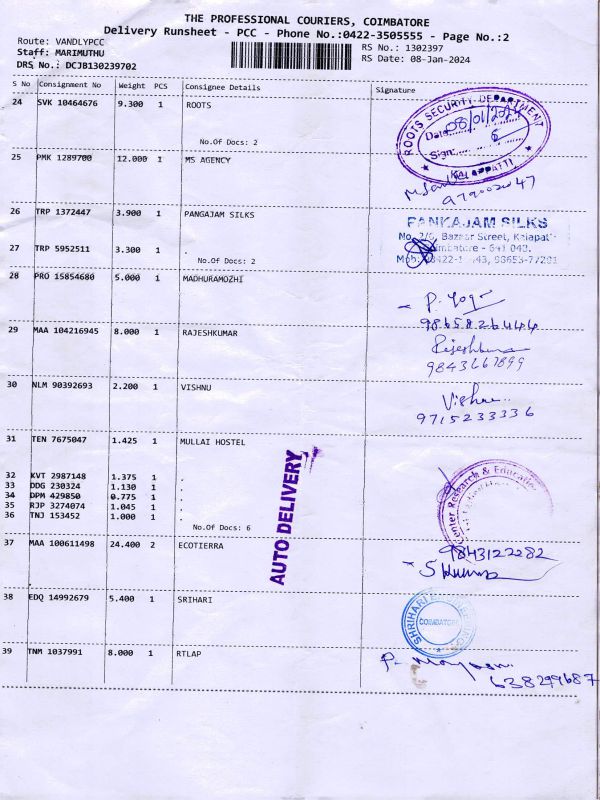 THE PROFESSIONAL COURIERS, COIMBATORE
Delivery Runsheet - PCC - Phone No.:0422-3505555 - Page No.:2
Route: VANDLYPCC
RS No.: 1302397
Staff: MARIMUTHU
RS Date: 08-Jan-2024
DRS No.: DCJB130239702
S No Consignment No Weight PCS Consignee Details Signature
24 SVK 10464676 9.300 1 ROOTS
ROOTS SECURITY DEPARTMENT
Date: 08/01/2024
Sign:
KALAPPATTI
No.Of Docs: 2
25 PMK 1289700 12.000 1 MS AGENCY
26 TRP 1372447 3.900 1 PANGAJAM SILKS
PANKAJAM SILKS
No. 2/6, Bazaar Street, Kalapatti
Coimbatore - 641 048.
27 TRP 5952511 3.300 1 .
No.Of Docs: 2
28 PRO 15854680 5.000 1 MADHURAMOZHI
P. Yoga
9865826444
29 MAA 104216945 8.000 1 RAJESHKUMAR
9843667899
30 NLM 90392693 2.200 1 VISHNU
Vishnu
9715233336
31 TEN 7675047 1.425 1 MULLAI HOSTEL
32 KVT 2987148 1.375 1 .
33 DDG 230324 1.130 1 .
34 DPM 429850 0.775 1 .
35 RJP 3274074 1.045 1 .
36 TNJ 153452 1.000 1 .
No.Of Docs: 6
Center Research & Education
AUTO DELIVERY
37 MAA 100611498 24.400 2 ECOTIERRA
9843122282
38 EDQ 14992679 5.400 1 SRIHARI
COIMBATORE
39 TNM 1037991 8.000 1 RTLAP
638299687